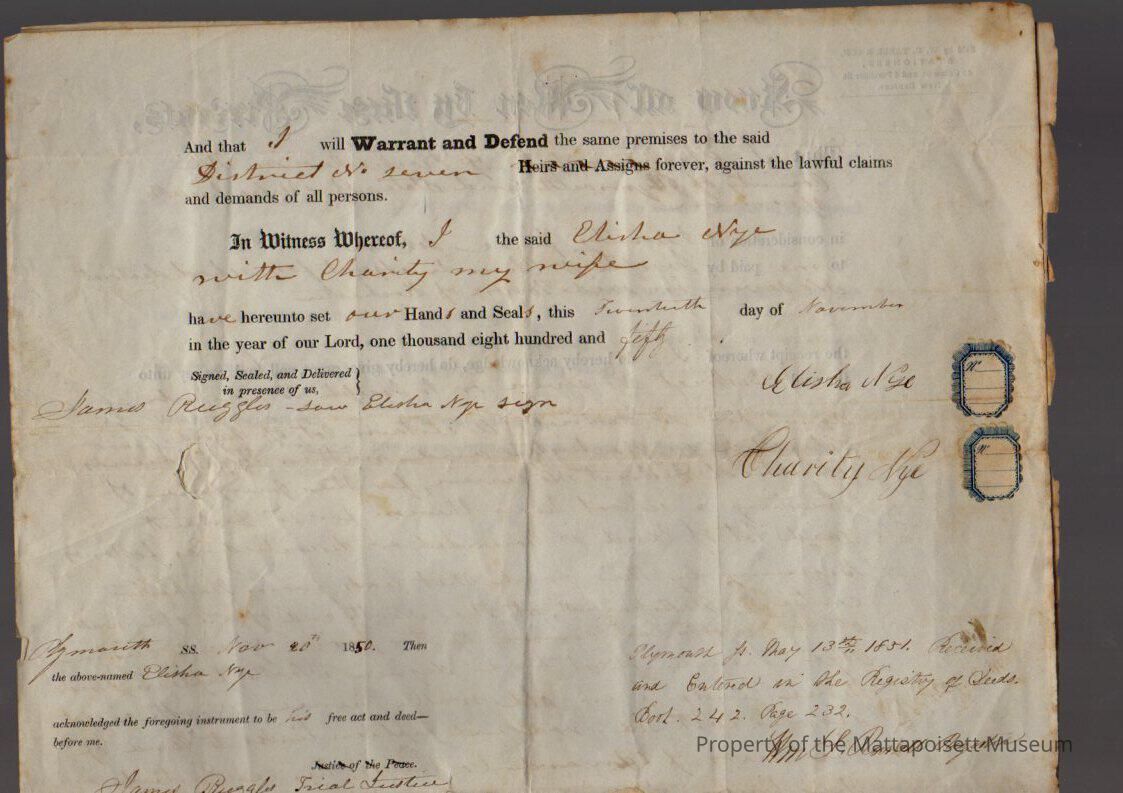 And that I will Warrant and Defend the same premises to the said
District No seven Heirs and Assigns forever, against the lawful claims
and demands of all persons.
In Witness Whereof, I the said Elisha Nye
with Charity my wife
have hereunto set our Hands and Seals, this Twentieth day of November
in the year of our Lord, one thousand eight hundred and fifty.
Signed, Sealed, and Delivered
in presence of us,
James Ruggles - saw Elisha Nye sign
Elisha Nye
Charity Nye
Plymouth SS. Nov 20th 1850. Then
the above-named Elisha Nye
acknowledged the foregoing instrument to be his free act and deed—
before me.
Justice of the Peace.
James Ruggles Trial Justice
Plymouth ss. May 13th 1851. Received
and Entered in the Registry of Deeds.
Book. 242. Page 232.
Wm S.
Property of the Mattapoisett Museum